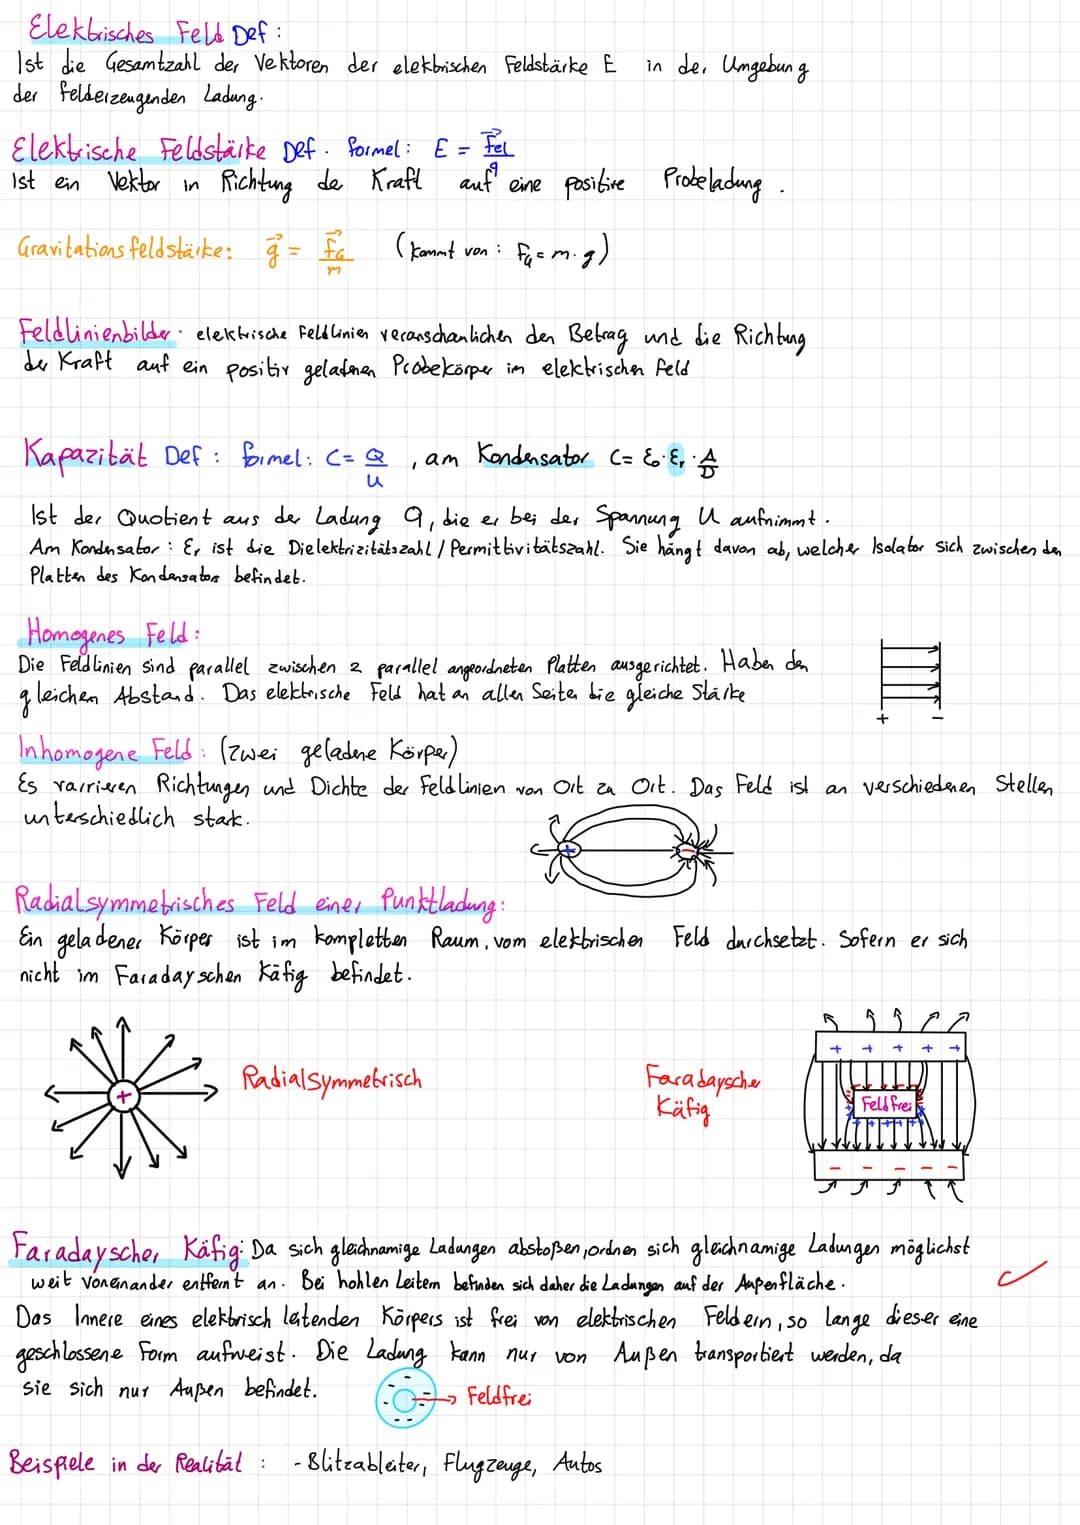 Elektrisches Feld Def:
Ist die Gesamtzahl der Vektoren der elektrischen Feldstärke E in der Umgebung
der felderzeugenden Ladung.
Elektrische Feldstärke Def. Formel: E = Fel/q
Ist ein Vektor in Richtung de Kraft auf eine positive Probeladung.
Gravitationsfeldstärke: g = FG/m (kommt von: FG = m·g)
Feldlinienbilder: elektrische Feldlinien veranschaulichen den Betrag und die Richtung
der Kraft auf ein positiv geladenen Probekörper im elektrischen Feld
Kapazität Def: Formel: C = Q/U, am Kondensator C = ε₀·εᵣ·A/D
Ist der Quotient aus der Ladung Q, die er bei der Spannung U aufnimmt.
Am Kondensator: εᵣ ist die Dielektrizitätszahl / Permittivitätszahl. Sie hängt davon ab, welcher Isolator sich zwischen den
Platten des Kondensators befindet.
Homogenes Feld:
Die Feldlinien sind parallel zwischen 2 parallel angeordneten Platten ausgerichtet. Haben den
gleichen Abstand. Das elektrische Feld hat an allen Seiten die gleiche Stärke
+ -
Inhomogene Feld: (zwei geladene Körper)
Es varrieren Richtungen und Dichte der Feldlinien von Ort zu Ort. Das Feld ist an verschiedenen Stellen
unterschiedlich stark.
+ -
Radialsymmetrisches Feld einer Punktladung:
Ein geladener Körper ist im kompletten Raum, vom elektrischen Feld durchsetzt. Sofern er sich
nicht im Faradayschen Käfig befindet.
+ + + + +
+ Radialsymmetrisch Faradayscher
Käfig
Feldfrei
- - - - -
Faradayscher Käfig: Da sich gleichnamige Ladungen abstoßen, ordnen sich gleichnamige Ladungen möglichst
weit voneinander entfernt an. Bei hohlen Leitern befinden sich daher die Ladungen auf der Außenfläche.
Das Innere eines elektrisch leitenden Körpers ist frei von elektrischen Feldern, so lange dieser eine
geschlossene Form aufweist. Die Ladung kann nur von Außen transportiert werden, da
sie sich nur Außen befindet.
Feldfrei
Beispiele in der Realität: - Blitzableiter, Flugzeuge, Autos